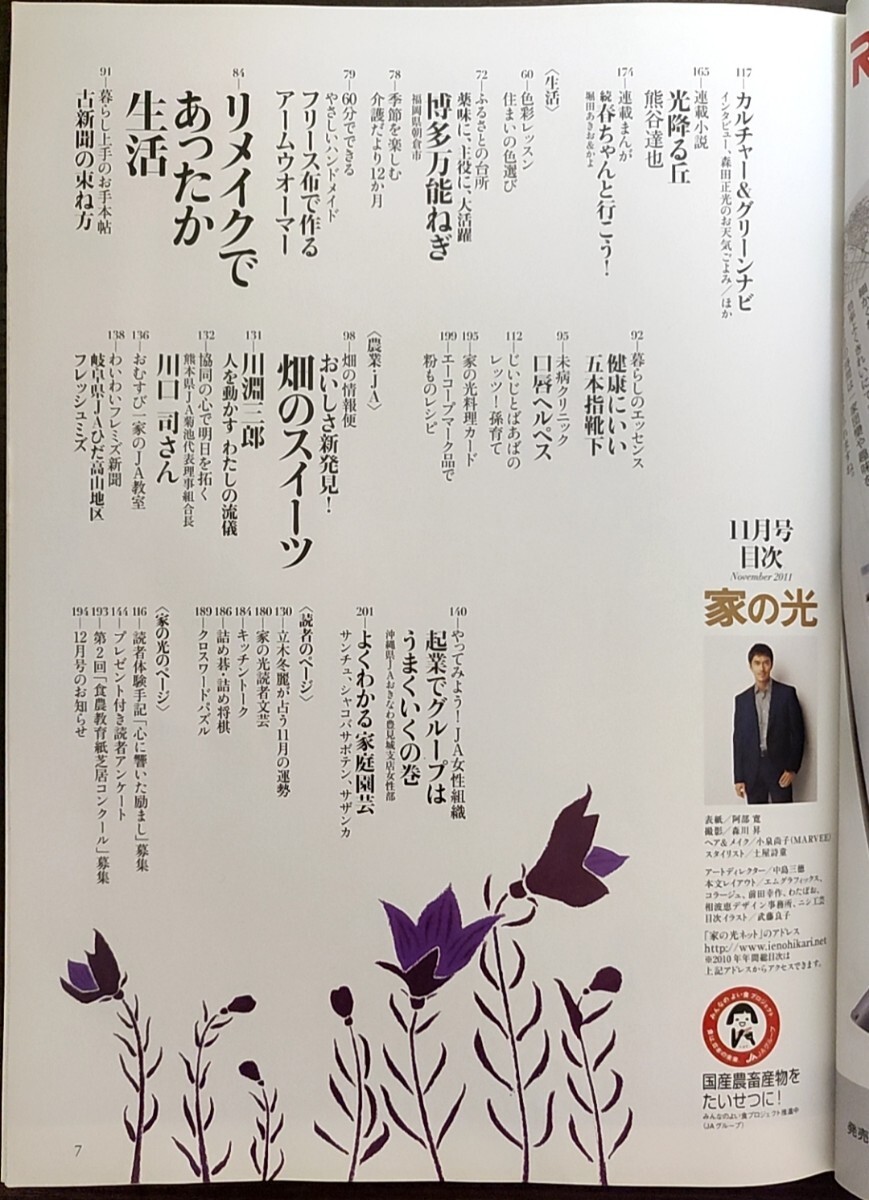 117 カルチャー&グリーンナビ
インタビュー、森田正光のお天気ごよみ/ほか
165 連載小説
光降る丘
熊谷達也
174 連載まんが
続 春ちゃんと行こう!
堀田あきお&かよ
〈生活〉
60 色彩レッスン
住まいの色選び
72 ふるさとの台所
薬味に、主役に、大活躍
博多万能ねぎ
福岡県朝倉市
78 季節を楽しむ
介護だより12か月
79 60分でできる
やさしいハンドメイド
フリース布で作る
アームウオーマー
84 リメイクで
あったか
生活
91 暮らし上手のお手本帖
古新聞の束ね方
92 暮らしのエッセンス
健康にいい
五本指靴下
95 未病クリニック
口唇ヘルペス
112 じいじとばあばの
レッツ!孫育て
195 家の光料理カード
199 エーコープマーク品で
粉ものレシピ
〈農業・JA〉
98 畑の情報便
おいしさ新発見!
畑のスイーツ
131 川淵三郎
人を動かす わたしの流儀
132 協同の心で明日を拓く
熊本県JA菊池代表理事組合長
川口 司さん
136 おむすび一家のJA教室
138 わいわいフレミズ新聞
岐阜県JAひだ高山地区
フレッシュミズ
140 やってみよう!JA女性組織
起業でグループは
うまくいくの巻
沖縄県JAおきなわ豊見城支店女性部
201 よくわかる家庭園芸
サンチュ、シャコバサボテン、サザンカ
〈読者のページ〉
130 立木冬麗が占う11月の運勢
180 家の光読者文芸
184 キッチントーク
186 詰め碁・詰め将棋
189 クロスワードパズル
〈家の光のページ〉
116 読者体験手記「心に響いた励まし」募集
144 プレゼント付き読者アンケート
193 第2回「食農教育紙芝居コンクール」募集
194 12月号のお知らせ
11月号
目次
November 2011
家の光
表紙/阿部 寛
撮影/森川 昇
ヘア&メイク/小泉尚子(MARVEE)
スタイリスト/土屋詩童
アートディレクター/中島三徳
本文レイアウト/エムグラフィックス、
コラージュ、前田幸作、わたぼお、
相波恵デザイン事務所、ニシ工芸
目次イラスト/武藤良子
「家の光ネット」のアドレス
http://www.ienohikari.net
※2010年年間総目次は
上記アドレスからアクセスできます。
みんなのよい食プロジェクト
JAグループ
国産農畜産物を
たいせつに!
みんなのよい食プロジェクト推進中
(JAグループ)
7
R
発売